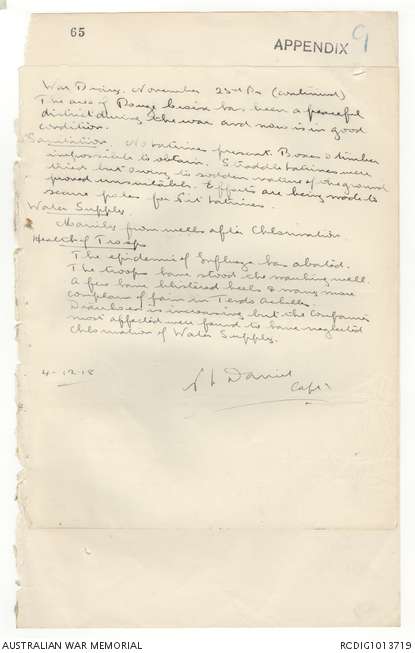 65
APPENDIX 9
War Diary. November 23rd (continued)
The area of has been a peaceful
district during the war and now is in good
condition.
Sanitation. No latrines present. Boxes & timber
impossible to obtain. Straddle latrines were
tried but owing to sodden nature of the ground
proved unsuitable. Efforts are being made to
secure poles for pit latrines.
Water Supply.
Mainly from wells after Chlorination
Health of Troops
The epidemic of Influenza has abated.
The troops have stood the marching well.
A few have blistered heels & many more
complain of pain in Tendo Achilles
Diarrhoea is increasing but the Companies
most affected were found to have neglected
Chlorination of Water Supply.
4-12-18
Daniel
Capt
AUSTRALIAN WAR MEMORIAL
RCDIG1013719